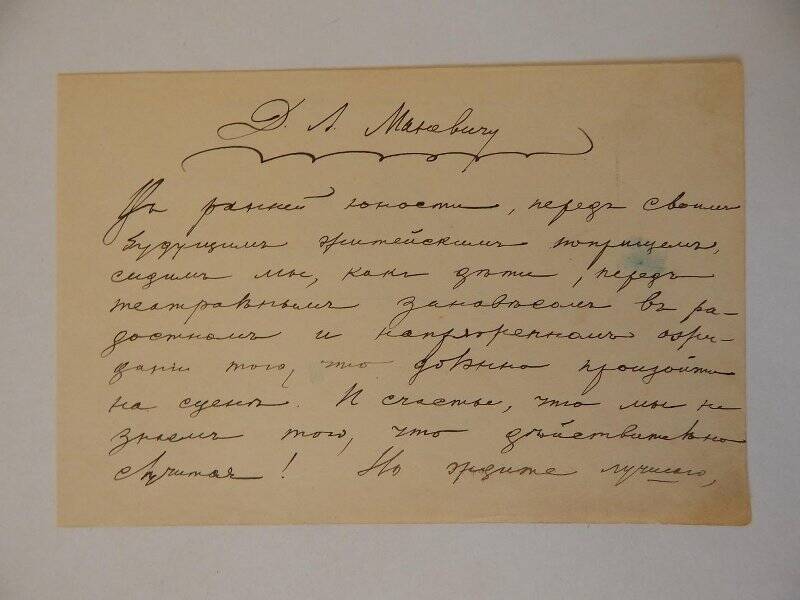 Д. Л. Маневичу
Въ ранней юности, передъ своимъ
будущимъ житейскимъ поприщемъ,
сидимъ мы, какъ дѣти, передъ
театральнымъ занавѣсомъ въ ра-
достномъ и напряженномъ ожи-
даніи того, что должно произойти
на сценѣ. И счастье, что мы не
знаемъ того, что дѣйствительно
случится! Но ждите лучшаго,